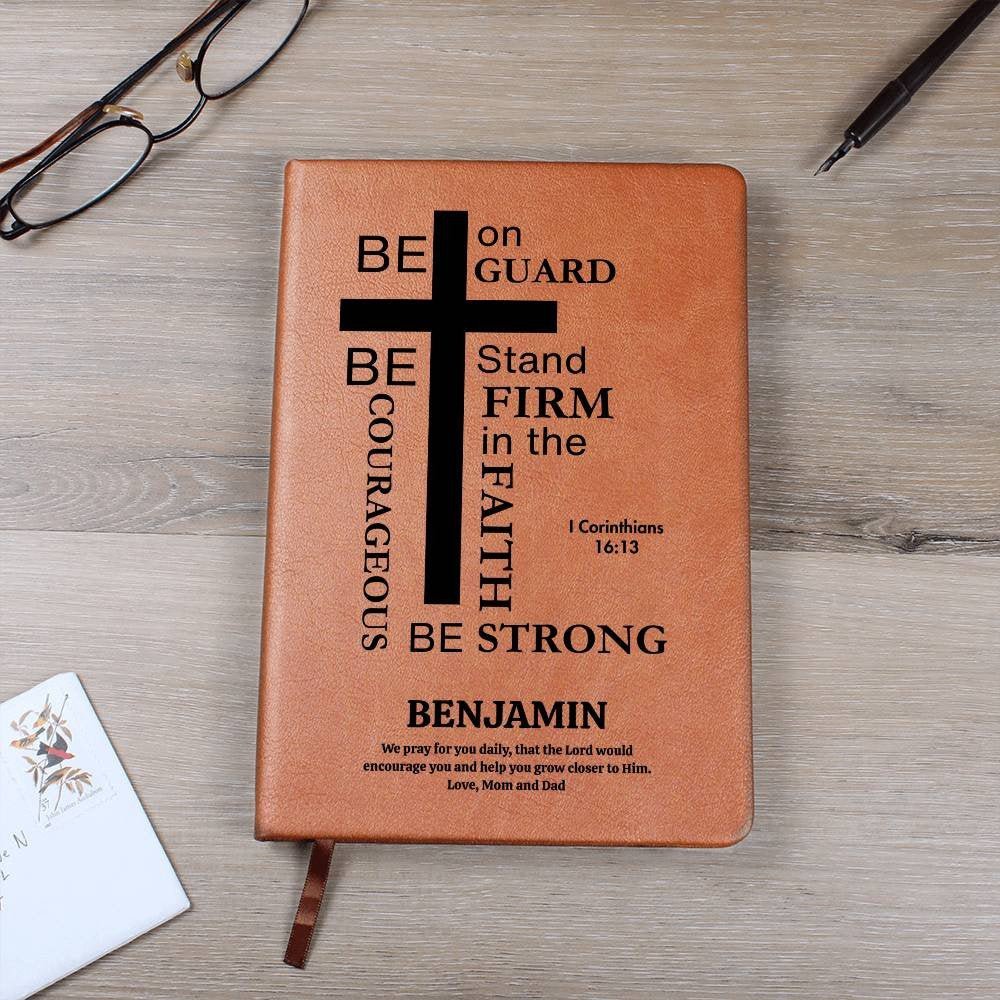 BE on
GUARD
BE Stand
COURAGEOUS
FIRM
in the
FAITH
I Corinthians
16:13
BE STRONG
BENJAMIN
We pray for you daily, that the Lord would
encourage you and help you grow closer to Him.
Love, Mom and Dad
37
John James Audubon
N